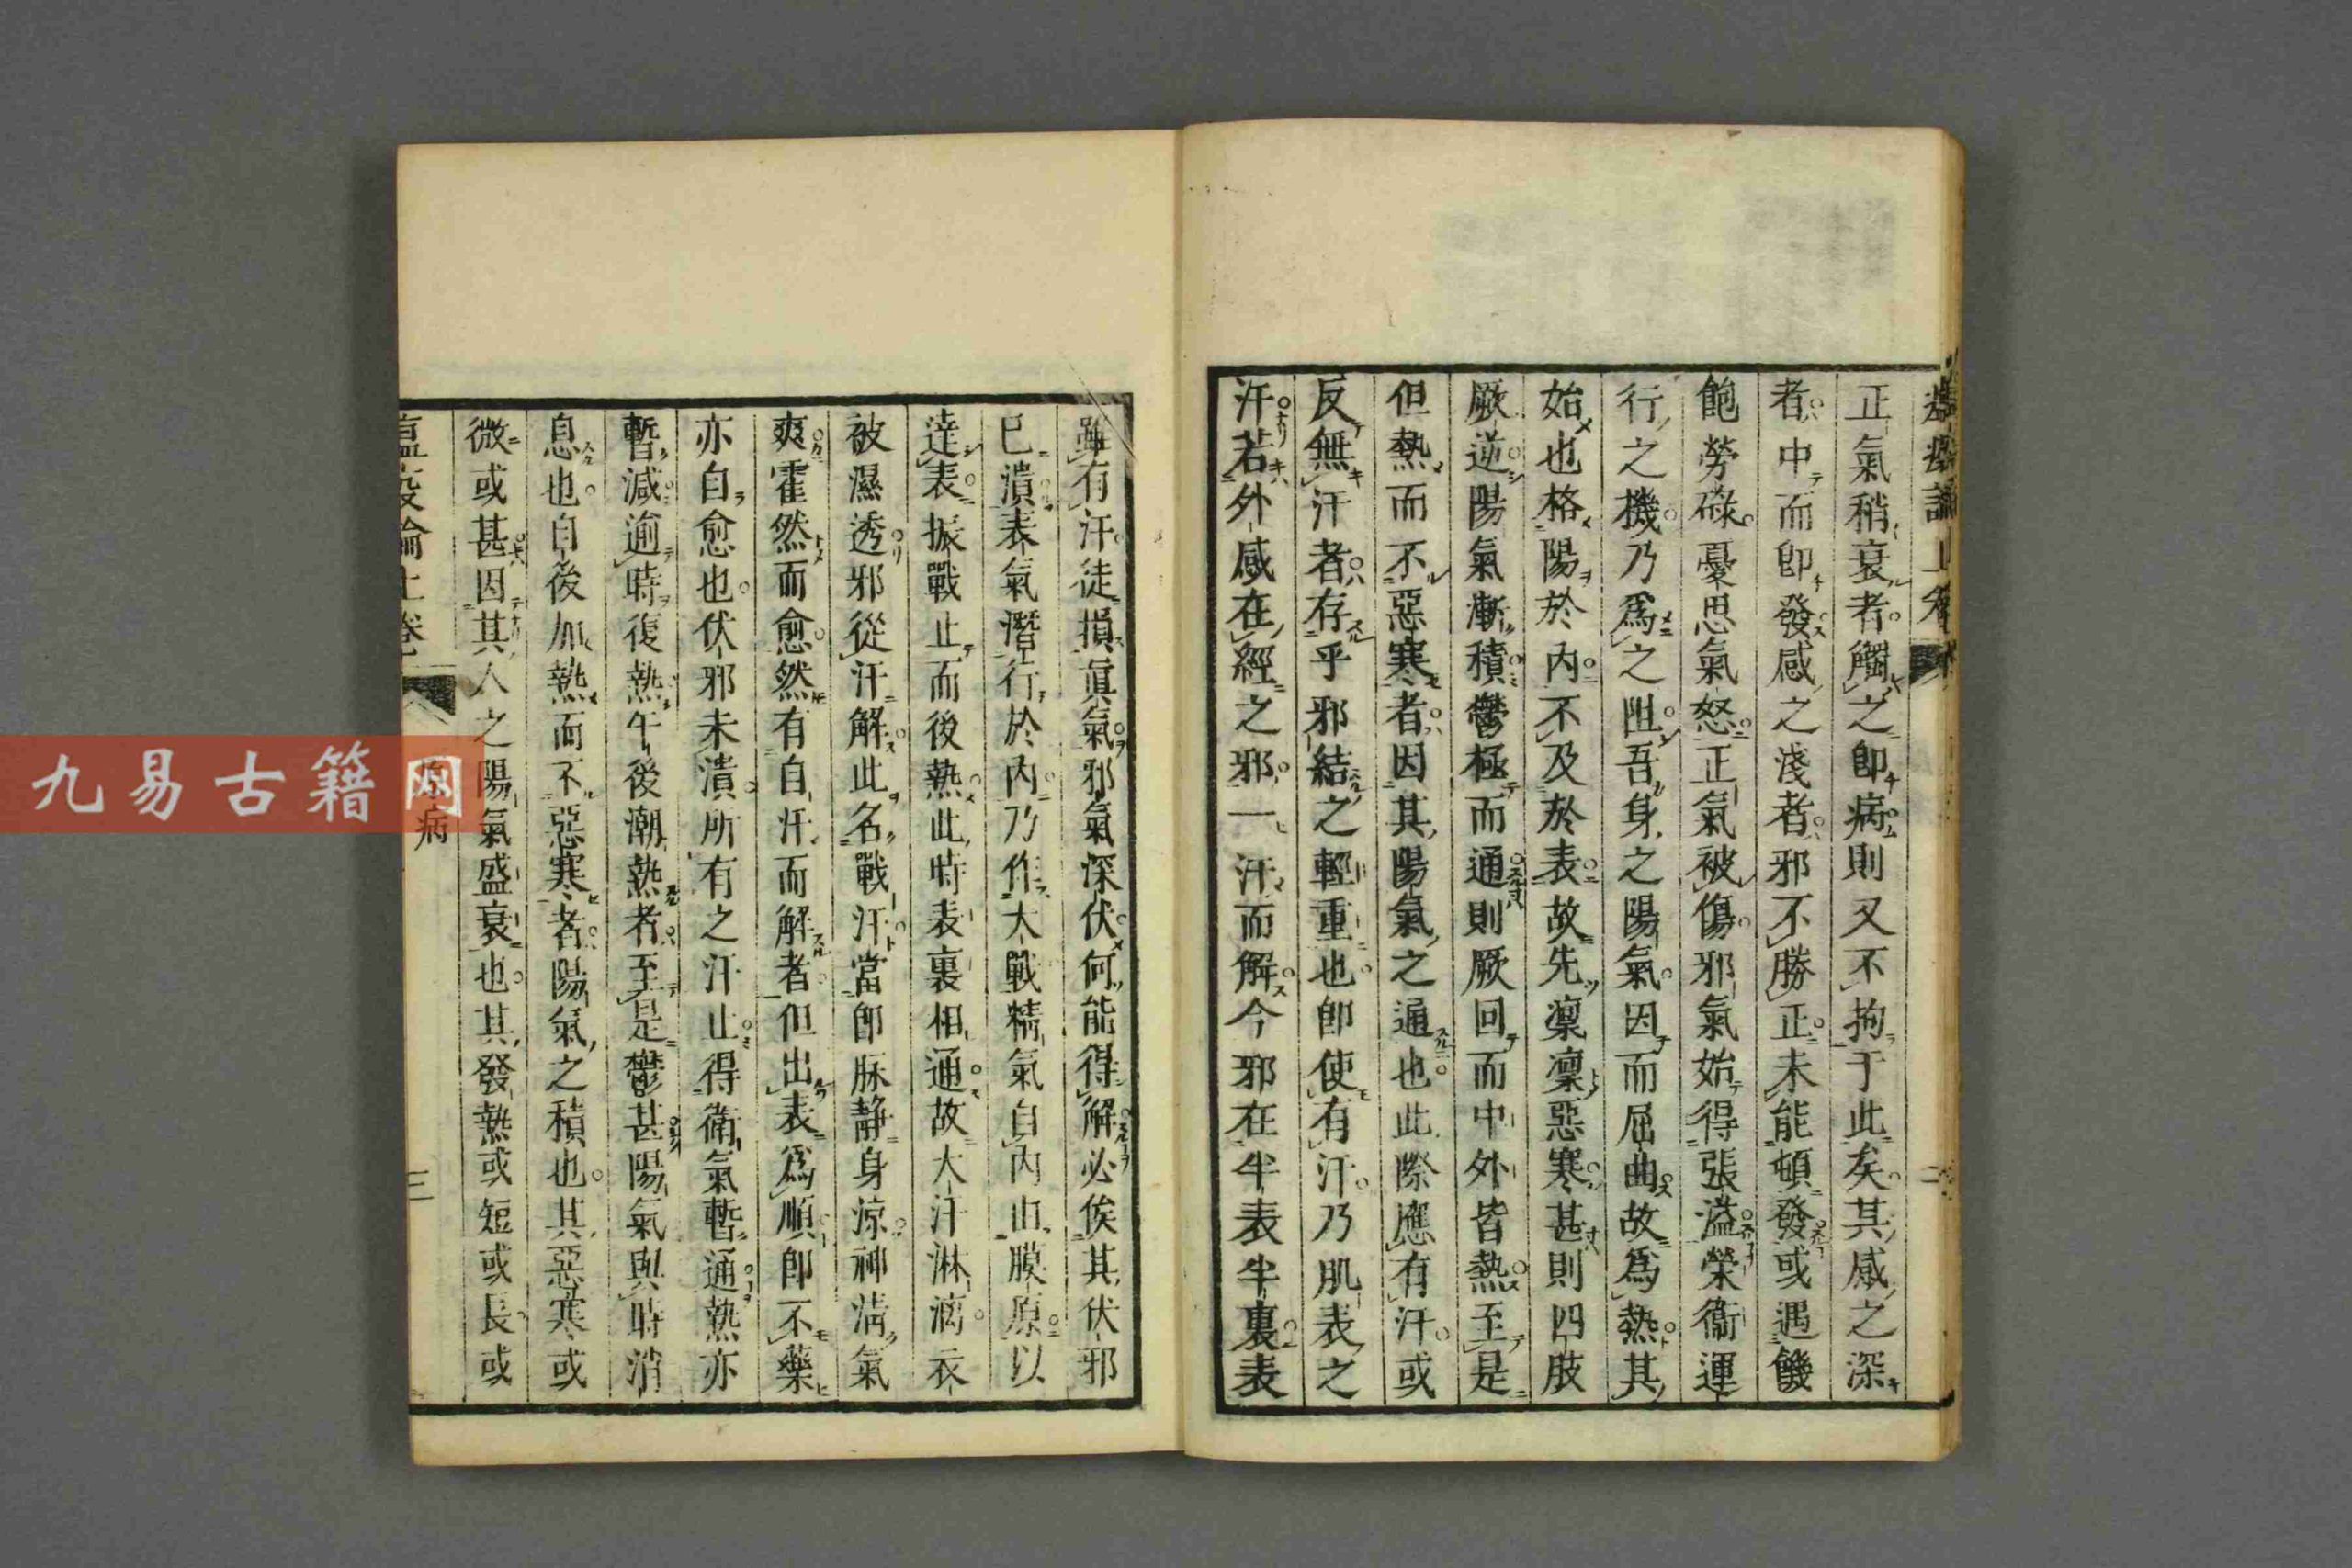 正氣稍衰者觸之即病則又不拘于此矣其感之深
者中而即發感之淺者邪不勝正未能頓發或遇饑
飽勞碌憂思氣怒正氣被傷邪氣始得張溢榮衞運
行之機乃爲之阻吾身之陽氣因而屈曲故爲熱其
始也格陽於内不及於表故先凜凜惡寒甚則四肢
厥逆陽氣漸積鬱極而通則厥回而中外皆熱至是
但熱而不惡寒者因其陽氣之通也此際應有汗或
反無汗者存乎邪結之輕重也即使有汗乃肌表之
汗若外感在經之邪一汗而解今邪在半表半裏表
雖有汗徒損眞氣邪氣深伏何能得解必俟其伏邪
已潰表氣潛行於内乃作大戰精氣自内由膜原以
達表振戰止而後熱此時表裏相通故大汗淋漓衣
被濕透邪從汗解此名戰汗當即脉靜身涼神清氣
爽霍然而愈然有自汗而解者但出表爲順即不藥
亦自愈也伏邪未潰所有之汗止得衛氣暫通熱亦
暫減逾時復熱午後潮熱者至是鬱甚陽氣與時消
息也自後加熱而不惡寒者陽氣之積也其惡寒或
微或甚因其人之陽氣盛衰也其發熱或短或長或
溫疫論上卷
原病
三
九易古籍网